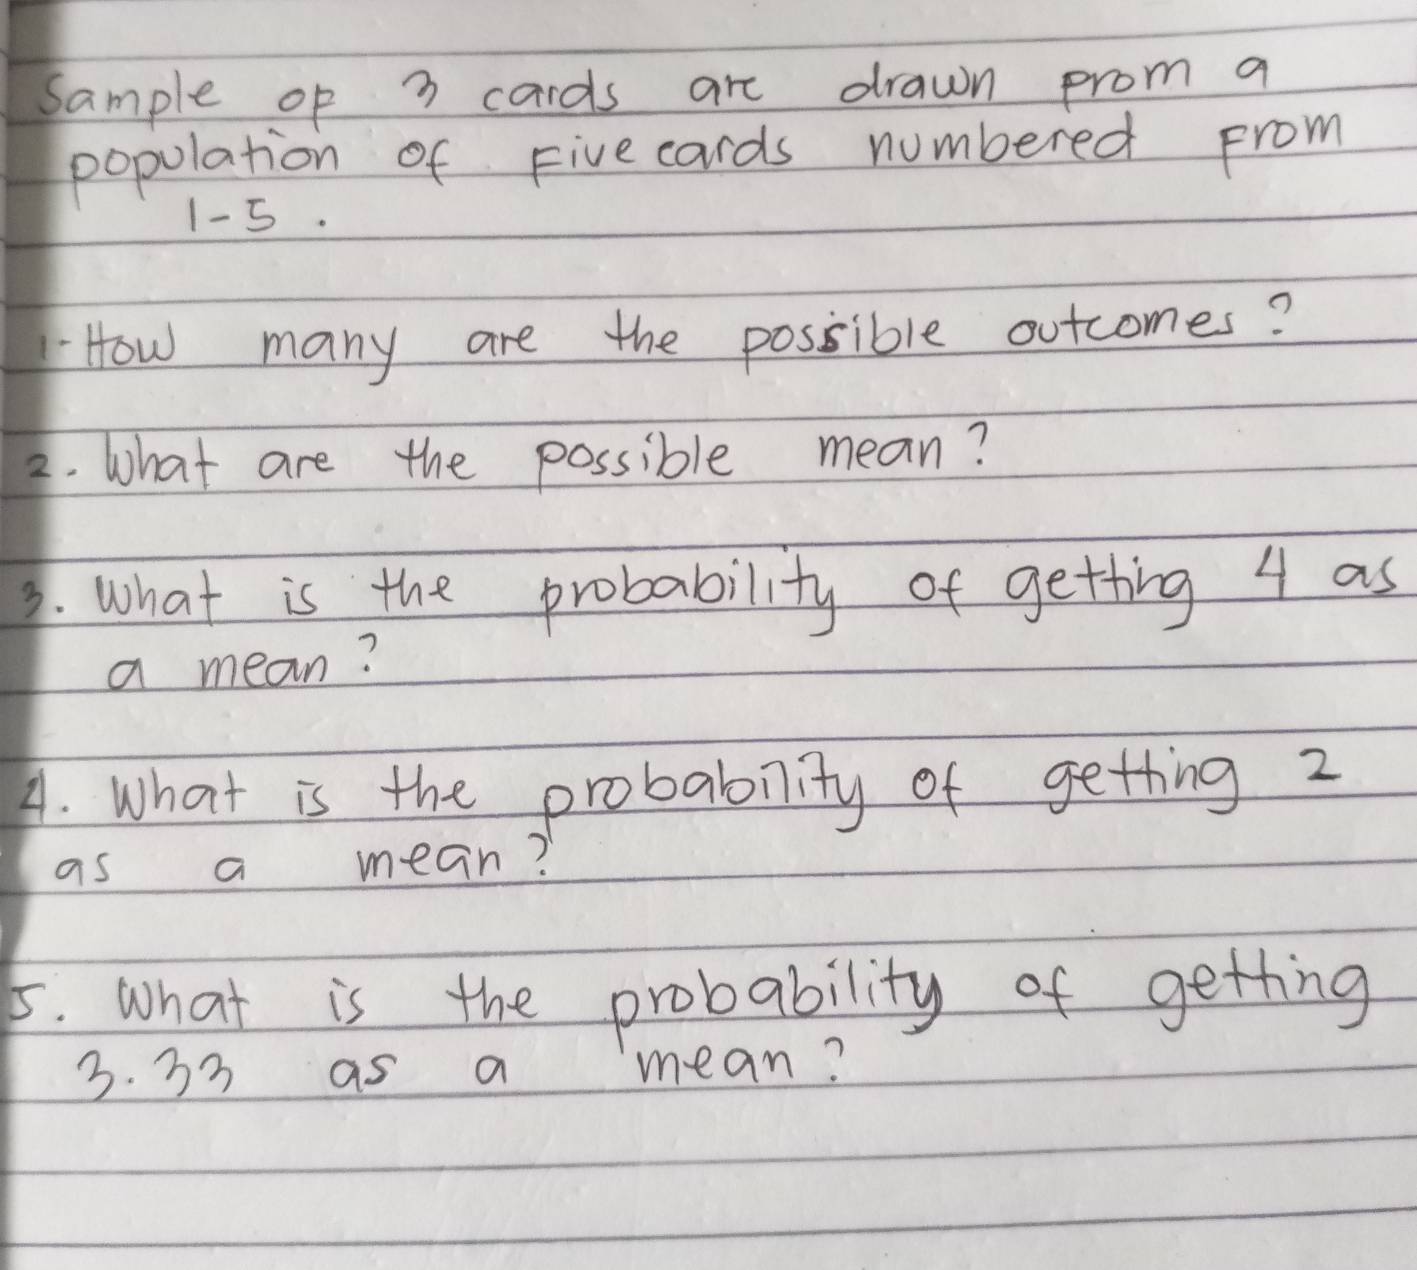 Sample op 3 cards are drawn prom a
population of Five cards numbered From
1-5.
1. How many are the possible outcomes?
2. What are the possible mean?
3. What is the probability of getting 4 as
a mean?
4. What is the probability of getting 2
as a mean?
5. What is the probability of getting
3.33 as a mean?